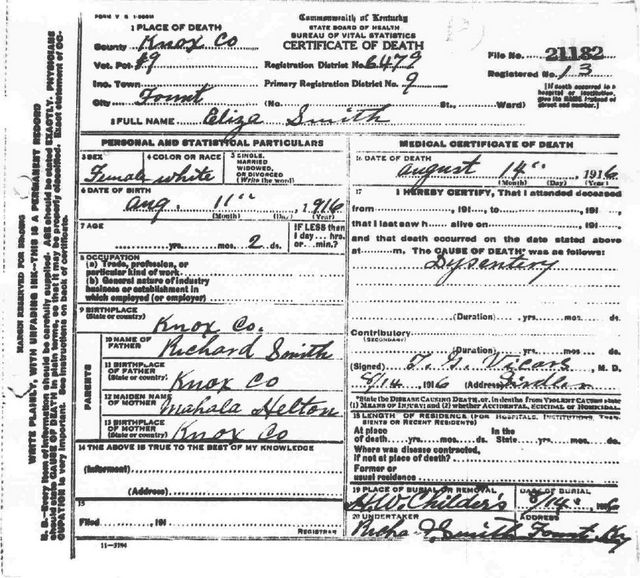 FORM V S 1-200M
Commonwealth of Kentucky
STATE BOARD OF HEALTH
BUREAU OF VITAL STATISTICS
CERTIFICATE OF DEATH
1 PLACE OF DEATH
County Knox Co
Vot. Pct #9
Registration District No. 6479
File No. 21182
Inc. Town
Primary Registration District No. 9
Registered No. 13
City Fount
(No. St., Ward)
[If death occurred in a hospital or institution, give its NAME instead of street and number.]
2 FULL NAME Eliza Smith
PERSONAL AND STATISTICAL PARTICULARS
3 SEX Female
4 COLOR OR RACE white
5 SINGLE, MARRIED WIDOWED, OR DIVORCED (Write the word)
6 DATE OF BIRTH
Aug. 11th 1916
(Month) (Day) (Year)
7 AGE
yrs. mos. 2 ds.
IF LESS than 1 day... hrs. or... min.?
8 OCCUPATION
(a) Trade, profession, or particular kind of work
(b) General nature of industry business or establishment in which employed (or employer)
9 BIRTHPLACE (State or country)
Knox Co.
PARENTS
10 NAME OF FATHER Richard Smith
11 BIRTHPLACE OF FATHER (State or country) Knox Co
12 MAIDEN NAME OF MOTHER Mahala Helton
13 BIRTHPLACE OF MOTHER (State or country) Knox Co
14 THE ABOVE IS TRUE TO THE BEST OF MY KNOWLEDGE
(Informant)
(Address)
15
Filed , 191
REGISTRAR
11-3784
MEDICAL CERTIFICATE OF DEATH
16 DATE OF DEATH
August 14th, 1916
(Month) (Day) (Year)
17 I HEREBY CERTIFY, That I attended deceased
from , 191 , to , 191 ,
that I last saw h alive on , 191 ,
and that death occurred on the date stated above
at m. The CAUSE OF DEATH* was as follows:
Dysentery
(Duration) yrs. mos. ds.
Contributory
(SECONDARY)
(Duration) yrs. mos. ds.
(Signed) T. G. Vicars, M. D.
8/14, 1916 (Address)
*State the DISEASE CAUSING DEATH, or, in deaths from VIOLENT CAUSES state (1) MEANS OF INJURY; and (2) whether ACCIDENTAL, SUICIDAL or HOMICIDAL.
18 LENGTH OF RESIDENCE (FOR HOSPITALS, INSTITUTIONS, TRANSIENTS OR RECENT RESIDENTS)
At place of death yrs. mos. ds. In the State yrs. mos. ds.
Where was disease contracted, if not at place of death?
Former or usual residence
19 PLACE OF BURIAL OR REMOVAL
DATE OF BURIAL
H.W. Childers 8/14 1916
20 UNDERTAKER
ADDRESS
Smith Fount Ky
MARGIN RESERVED FOR BINDING
WRITE PLAINLY, WITH UNFADING INK—THIS IS A PERMANENT RECORD
N. B.—Every item of information should be carefully supplied. AGE should be stated EXACTLY. PHYSICIANS should state CAUSE OF DEATH in plain terms, so that it may be properly classified. Exact statement of OCCUPATION is very important. See instructions on back of certificate.